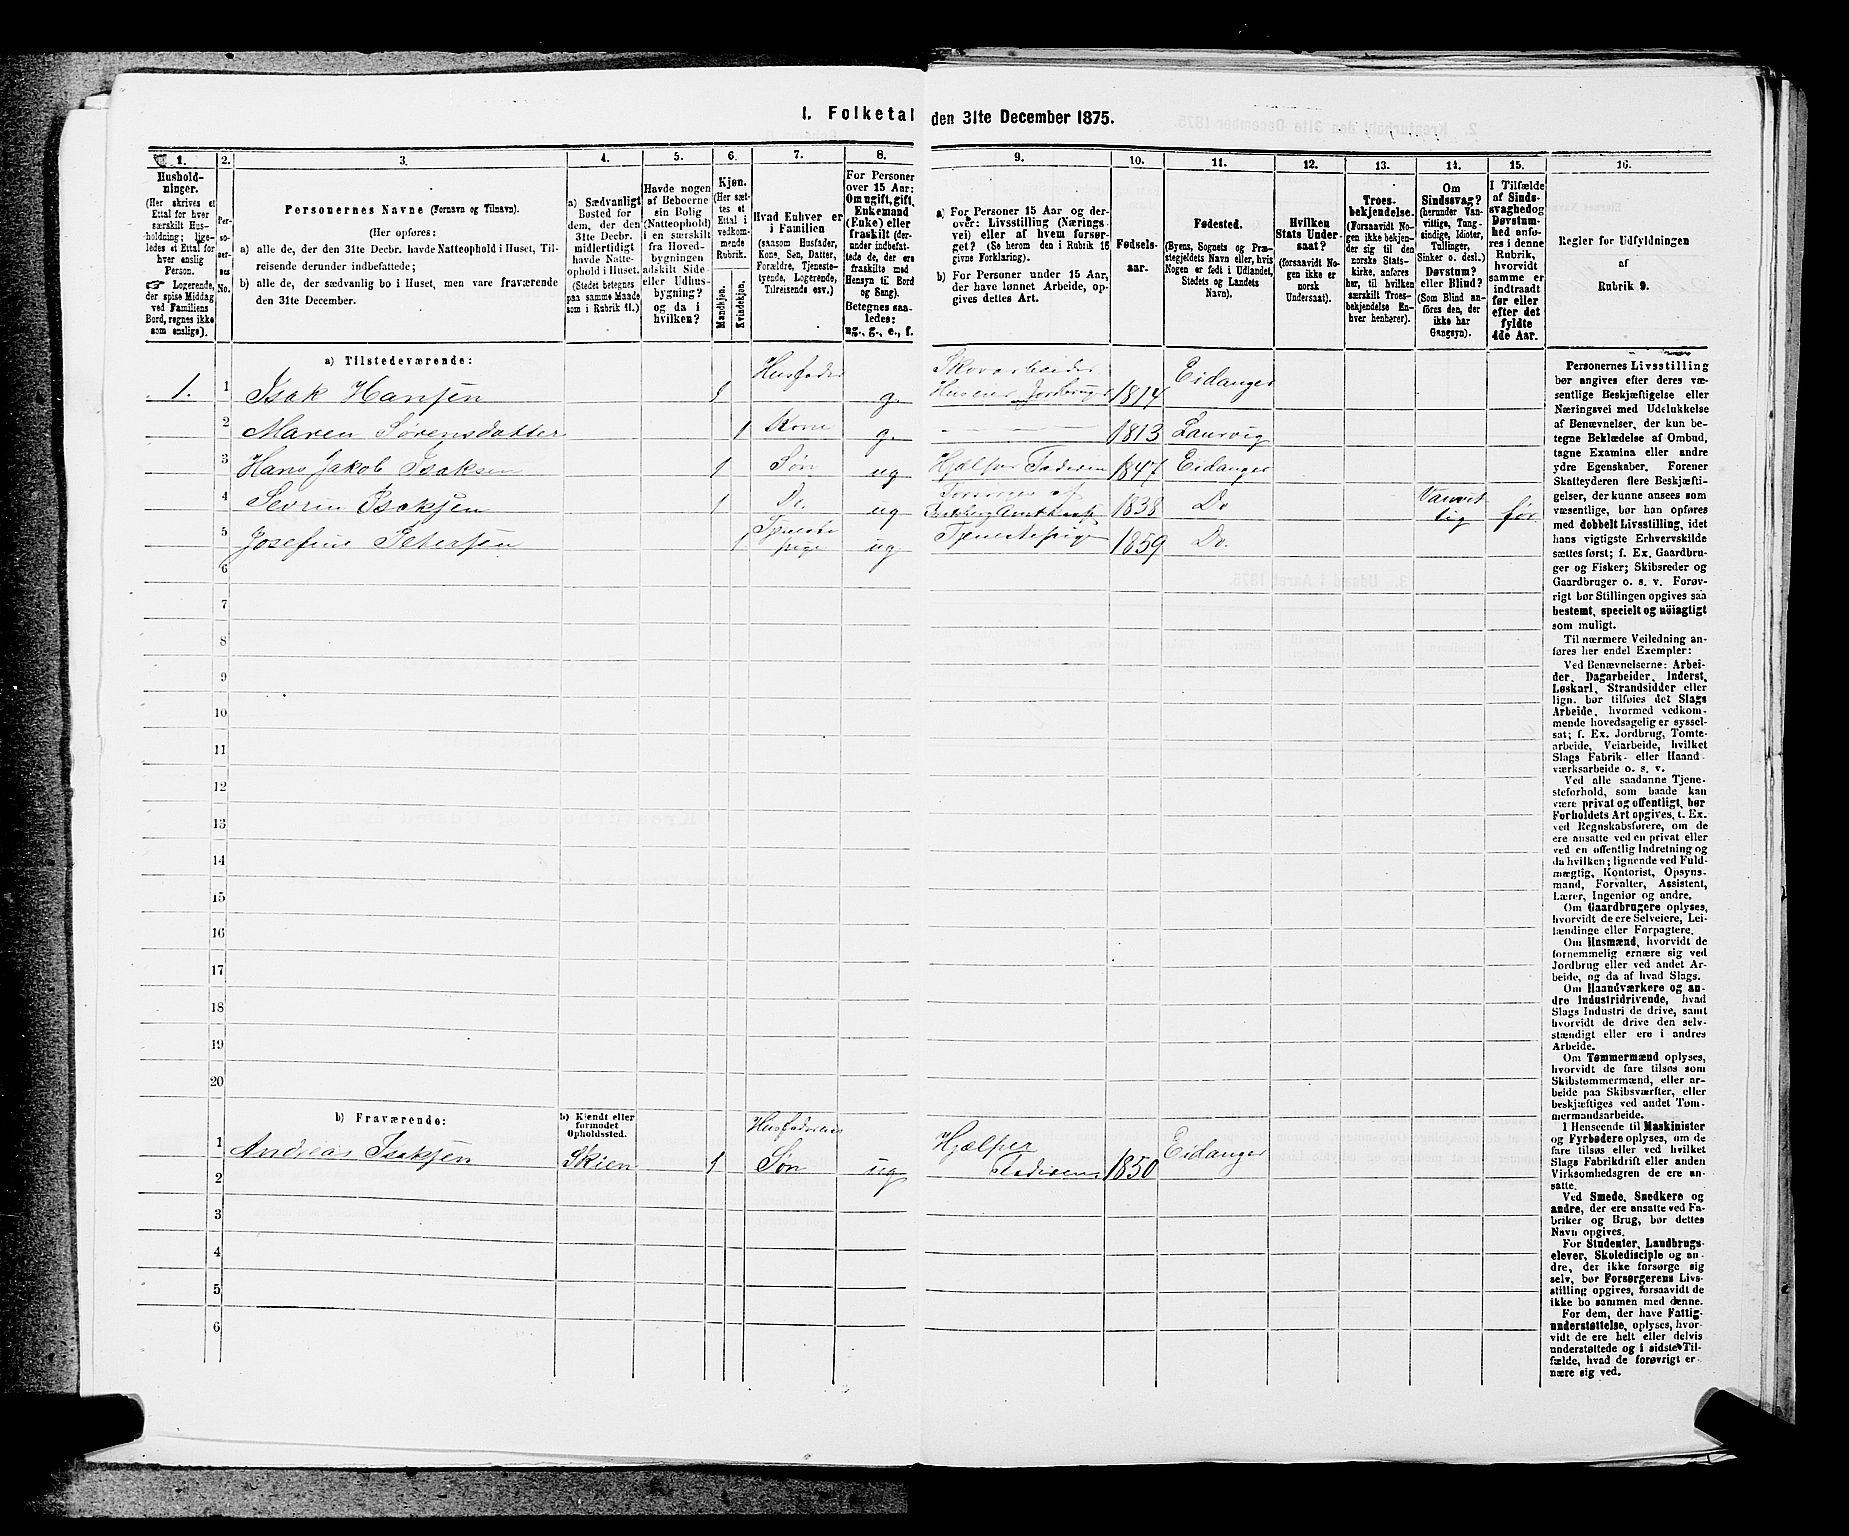 1. Folketal den 31te December 1875.
1.
Hushold-
ninger.
(Her skrives et
Ettal for hver
særskilt Hus-
holdning; lige-
ledes et Ettal for
hver enslig
Person.
☞ Logerende,
der spise Middag
ved Familiens
Bord, regnes ikke
som enslige).
2.
Per-
so-
ner-
nes
No.
3.
Personernes Navne (Fornavn og Tilnavn).
(Her opføres:
a) alle de, der den 31te Decbr. havde Natteophold i Huset, Til-
reisende derunder indbefattede;
b) alle de, der sædvanlig bo i Huset, men vare fraværende
den 31te December.
4.
a) Sædvanligt
Bosted for
dem, der den
31te Decbr.
midlertidigt
havde Natte-
ophold i Huset.
(Stedet betegnes
paa samme Maade
som i Rubrik 11.)
5.
Havde nogen
af Beboerne
sin Bolig
(Natteophold)
i en særskilt
fra Hoved-
bygningen
adskilt Side-
eller Udhus-
bygning?
og da i
hvilken?
6.
Kjøn.
(Her sæt-
tes et
Ettal i
vedkom-
mende
Rubrik.
Mandkjøn.
Kvindekjøn.
7.
Hvad Enhver er
i Familien
(saasom Husfader,
Kone, Søn, Datter,
Forældre, Tjeneste-
tyende, Logerende,
Tilreisende osv.)
8.
For Personer
over 15 Aar:
Om ugift, gift,
Enkemand
(Enke) eller
fraskilt (der-
under indbefat-
tede de, der ere
fraskilte med
Hensyn til Bord
og Seng).
Betegnes saa-
ledes:
ug., g., e., f.
9.
a) For Personer 15 Aar og der-
over: Livsstilling (Nærings-
vei) eller af hvem forsør-
get? (Se herom den i Rubrik 16
givne Forklaring).
b) For Personer under 15 Aar,
der have lønnet Arbeide, op-
gives dettes Art.
10.
Fødsels-
aar.
11.
Fødested.
(Byens, Sognets og Præ-
stegjeldets Navn eller, hvis
Nogen er født i Udlandet,
Stedets og Landets
Navn).
12.
Hvilken
Stats Under-
saat?
(forsaavidt No-
gen ikke er
norsk
Undersaat).
13.
Troes-
bekjendelse.
(Forsaavidt No-
gen ikke bekjen-
der sig til den
norske Stats-
kirke, anføres
her, til hvilken
særskilt Troes-
bekjendelse En-
hver henhører).
14.
Om
Sindssvag?
(herunder Van-
vittige, Tung-
sindige, Idioter,
Tullinger,
Sinker o. desl.)
Døvstum?
eller Blind?
(Som Blind an-
føres den, der
ikke har
Gangsyn).
15.
I Tilfælde
af Sinds-
svaghed og
Døvstum-
hed anfø-
res i denne
Rubrik,
hvorvidt
samme er
indtraadt
før eller
efter det
fyldte
4de Aar.
16.
Regler for Udfyldningen
af
Rubrik 9.
a) Tilstedeværende:
1. 1 Isak Hansen 1 Husfader g. Skovarbeider Huseier Jordbruger 1814 Eidanger
2 Maren Sørensdatter 1 Kone g. 1813 Laurvig
3 Hans Jakob Isaksen 1 Søn ug Hjælper Faderen 1847 Eidanger
4 Sevrin Isaksen 1 Do. ug Forsørges af 1838 Do Vanvittig før
5 Josefine Petersen 1 Tjenestepige ug Tjenestepige 1859 Do.
6
7
8
9
10
11
12
13
14
15
16
17
18
19
20
b) Fraværende:
b) Kjendt eller
formodet
Opholdssted.
1 Andreas Isaksen Skien 1 Husfaderens Søn ug Hjælper Faderen 1850 Eidanger
2
3
4
5
6
Personernes Livsstilling
bør angives efter deres væ-
sentlige Beskjæftigelse eller
Næringsvei med Udelukkelse
af Benævnelser, der kun be-
tegne Beklædelse af Ombud,
tagne Examina eller andre
ydre Egenskaber. Forener
Skatteyderen flere Beskjæfti-
gelser, der kunne ansees som
væsentlige, bør han opføres
med dobbelt Livsstilling, idet
hans vigtigste Erhvervskilde
sættes først; f. Ex. Gaardbru-
ger og Fisker; Skibsreder og
Gaardbruger o. s. v. Forøv-
rigt bør Stillingen opgives saa
bestemt, specielt og nöiagtigt
som muligt.
Til nærmere Veiledning an-
føres her endel Exempler:
Ved Benævnelserne: Arbei-
der, Dagarbeider, Inderst,
Løskarl, Strandsidder eller
lign. bør tilføies det Slags
Arbeide, hvormed vedkom-
mende hovedsagelig er syssel-
sat; f. Ex. Jordbrug, Tomte-
arbeide, Veiarbeide, hvilket
Slags Fabrik- eller Haand-
værksarbeide o. s. v.
Ved alle saadanne Tjene-
steforhold, som baade kan
være privat og offentligt, bør
Forholdets Art opgives, t. Ex.
ved Regnskabsførere, om de
ere ansatte ved en privat eller
ved en offentlig Indretning og
da hvilken; lignende ved Fuld-
mægtig, Kontorist, Opsyns-
mand, Forvalter, Assistent,
Lærer, Ingeniør og andre.
Om Gaardbrugere oplyses,
hvorvidt de ere Selveiere, Lei-
lændinge eller Forpagtere.
Om Husmænd, hvorvidt de
fornemmelig ernære sig ved
Jordbrug eller ved andet Ar-
beide, og da af hvad Slags.
Om Haandværkere og an-
dre Industridrivende, hvad
Slags Industri de drive, samt
hvorvidt de drive den selv-
stændigt eller ere i andres
Arbeide.
Om Tømmermænd oplyses,
hvorvidt de fare tilsøs som
Skibstømmermænd, eller ar-
beide paa Skibsværfter, eller
beskjæftiges ved andet Tøm-
mermandsarbeide.
I Henseende til Maskinister
og Fyrbødere oplyses, om de
fare tilsøs eller ved hvilket
Slags Fabrikdrift eller anden
Virksomhedsgren de ere an-
satte.
Ved Smede, Snedkere og
andre, der ere ansatte ved Fa-
briker og Brug, bør dettes
Navn opgives.
For Studenter, Landbrugs-
elever, Skoledisciple og an-
dre, der ikke forsørge sig
selv, bør Forsørgerens Livs-
stilling opgives, forsaavidt de
ikke bo sammen med denne.
For dem, der have Fattig-
understøttelse, oplyses, hvor-
vidt de ere helt eller delvis
understøttede og i sidste Til-
fælde, hvad de forøvrigt er-
nære sig ved.